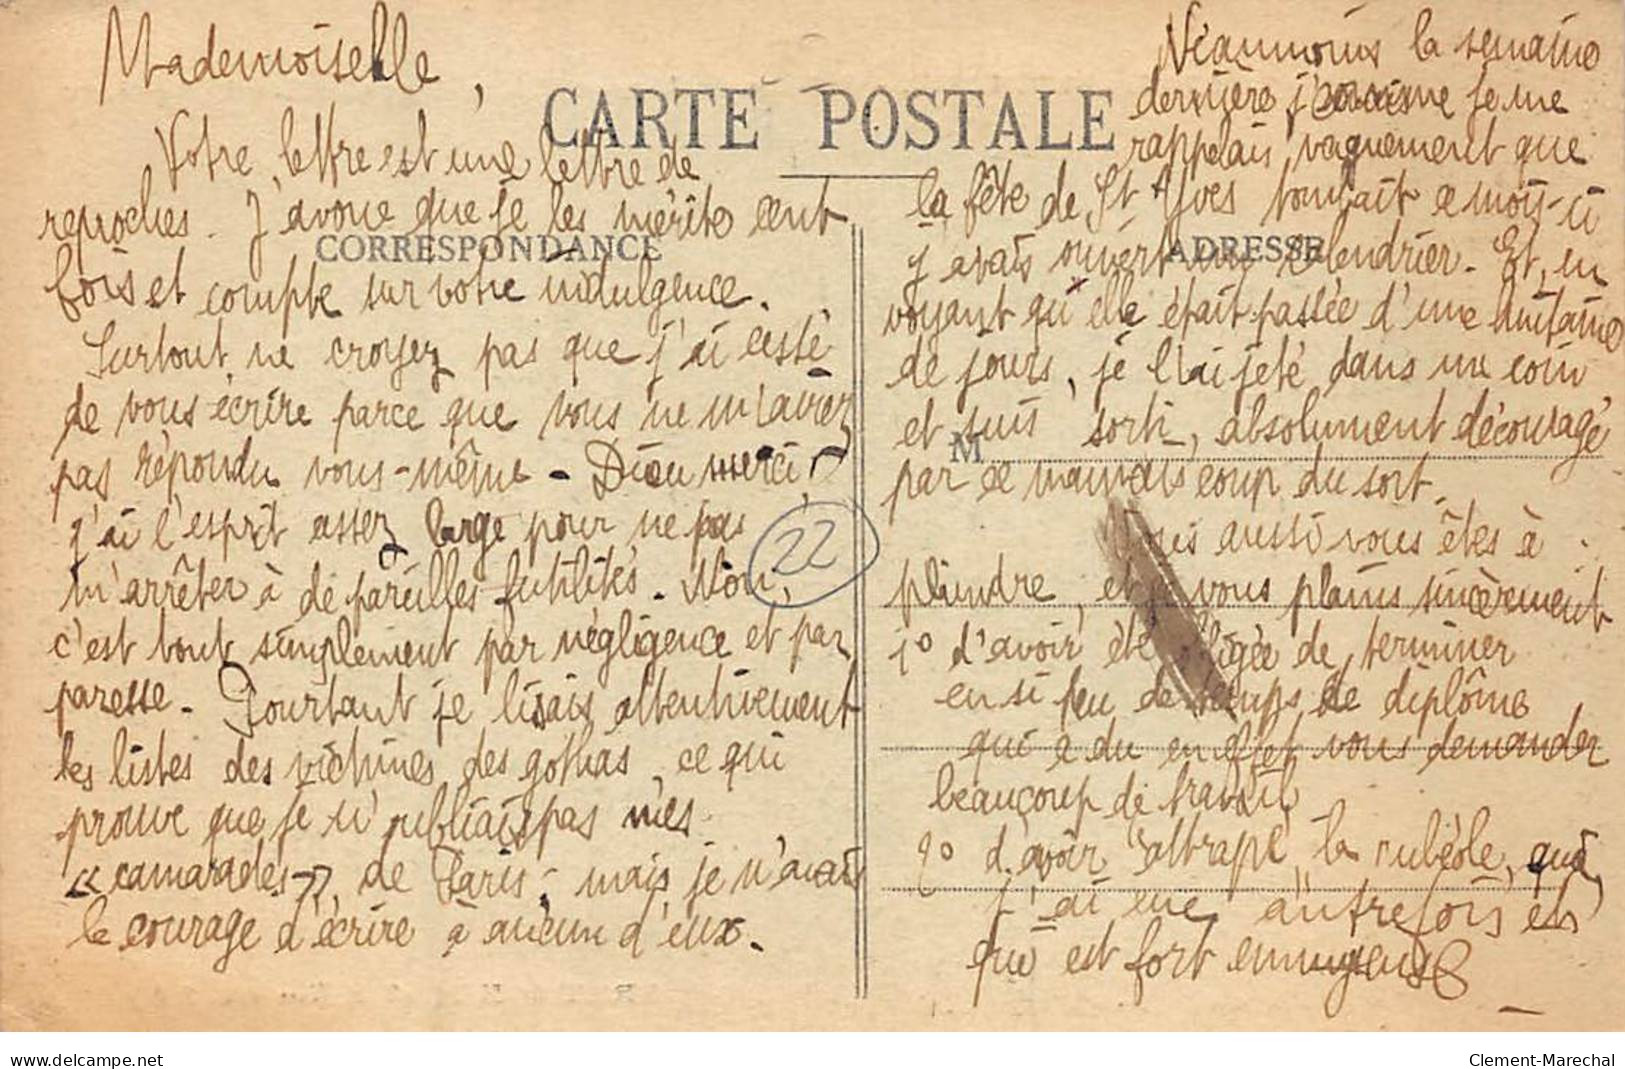 Mademoiselle,
CARTE POSTALE
Votre lettre est une lettre de
reproches. J'avoue que je les mérite cent
CORRESPONDANCE
fois et compte sur votre indulgence.
Surtout, ne croyez pas que j'ai cessé
de vous écrire parce que vous ne m'aviez
pas répondu vous-même - Dieu merci,
j'ai l'esprit assez large pour ne pas
22
m'arrêter à de pareilles futilités. Non,
c'est tout simplement par négligence et par
paresse. Pourtant je lisais attentivement
les listes des victimes des gothas, ce qui
prouve que je n'oubliais pas mes
« camarades » de Paris; mais je n'avais
le courage d'écrire à aucun d'eux.
Néanmoins la semaine
dernière, comme je me
rappelais vaguement que
la fête de St Yves tombait ce mois-ci
ADRESSE
j'avais ouvert calendrier. Et, en
voyant qu'elle était passée d'une huitaine
de jours, je l'ai jeté dans un coin
et suis sorti, absolument découragé
M
par ce mauvais coup du sort.
Mais aussi vous êtes à
plaindre, et je vous plains sincèrement
1° d'avoir été obligée de terminer
en si peu de temps ce diplôme
qui a du en effet vous demander
beaucoup de travail
2° d'avoir attrapé la rubéole, que
j'ai eue autrefois et
qui est fort ennuyeuse
delcampe.net
Clement-Marechal